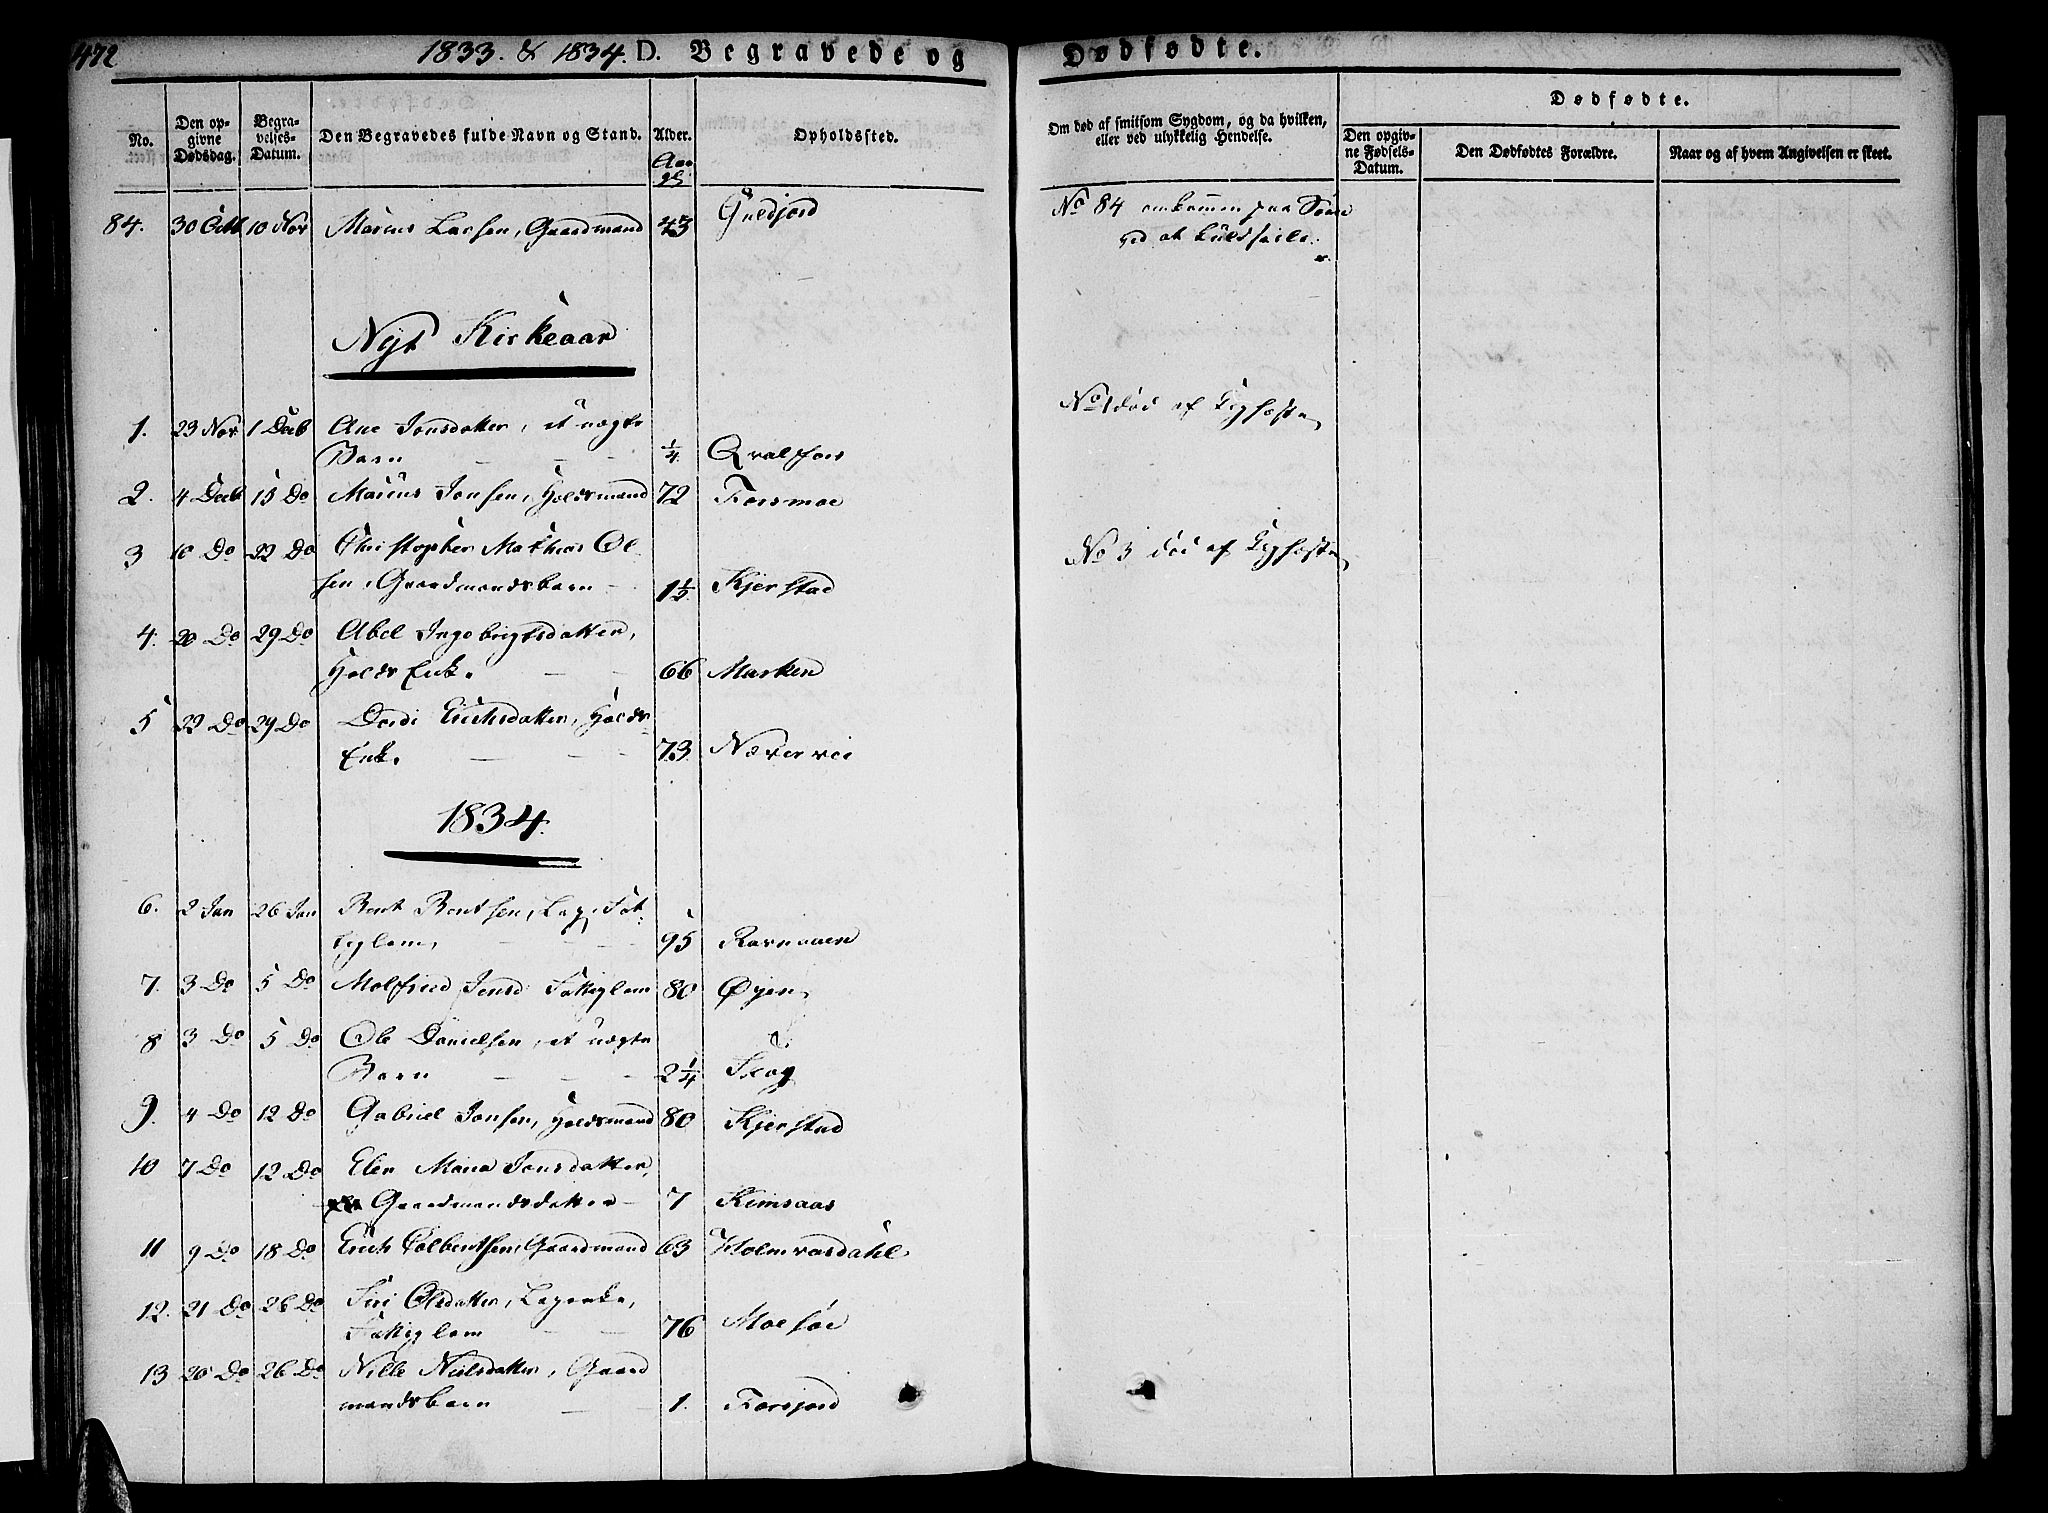 472 1833. & 1834. D. Begravede og Dødfødte.
No. Den opgivne Dødsdag. Begravelses-Datum. Den Begravedes fulde Navn og Stand. Alder. Opholdssted. Om død af smitsom Sygdom, og da hvilken, eller ved ulykkelig Hendelse. Den opgivne Fødsels-Datum. Den Dødfødtes Forældre. Naar og af hvem Angivelsen er skeet.
Dødfødte.
Aar
84. 30 Octb 10 Nov Marcus Larsen, Gaardmand 43 No 84 omkommen paa Søen
ved at kuldseile.
Nyt Kirkeaar
1. 23 Nov 1 Decb Ane Jonsdatter, et uægte
Barn 1/4 Qvalfors No 1 død af Kighoste
2. 4 Decb 15 Do Marcus Jonsen, Holdsmand 72 Forsmoe
3 10 Do 22 Do Christopher Mathias Ol-
sen, Gaardmandsbarn 1 1/2 Kjerstad No 3 død af Kighoste
4. 20 Do 29 Do Abel Ingebrigtsdatter,
Holds Enke. 66 Marken
5 22 Do 29 Do Dordi Erichsdatter, Holds
Enke. 73 Nævervie
1834.
6. 2 Jan 26 Jan Bent Bentsen, Læg, Fat-
tiglem, 95 Ravnaaen
7. 3 Do 5 Do Molfried Jensd Fattiglem 80 Øyen
8 3 Do 5 Do Ole Danielsen, et uægte
Barn 2 1/4 Skog
9. 4 Do 12 Do Gabriel Jonsen, Holdsmand 80 Kjerstad
10 7 Do 12 Do Elen Maria Jonsdatter,
Gaardmandsdatter 7 Remsaas
11 9 Do 18 Do Erich Tolbentsen, Gaardmand 63 Holmvasdahl
12. 21 Do 26 Do Siri Olsdatter, Lægenke,
Fattiglem 76 Moesøe
13 20 Do 26 Do Nille Nielsdatter, Gaard
mandsbarn 1. Forsjord